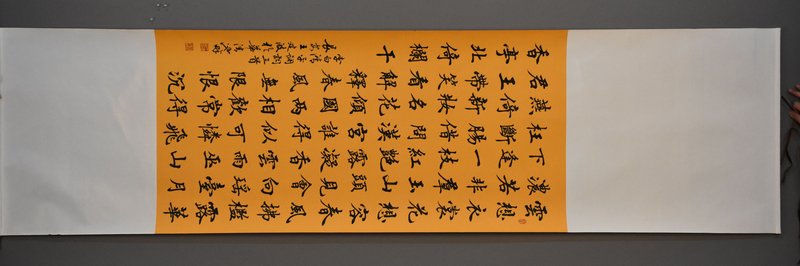 雲想衣裳花想容春風拂檻露華
濃若非群玉山頭見會向瑤臺月
下逢一枝紅艷露凝香雲雨巫山
枉斷腸借問漢宮誰得似可憐飛
燕倚新妝名花傾國兩相歡常得
君王帶笑看解釋春風無限恨沉
香亭北倚欄干
李白清平調三首